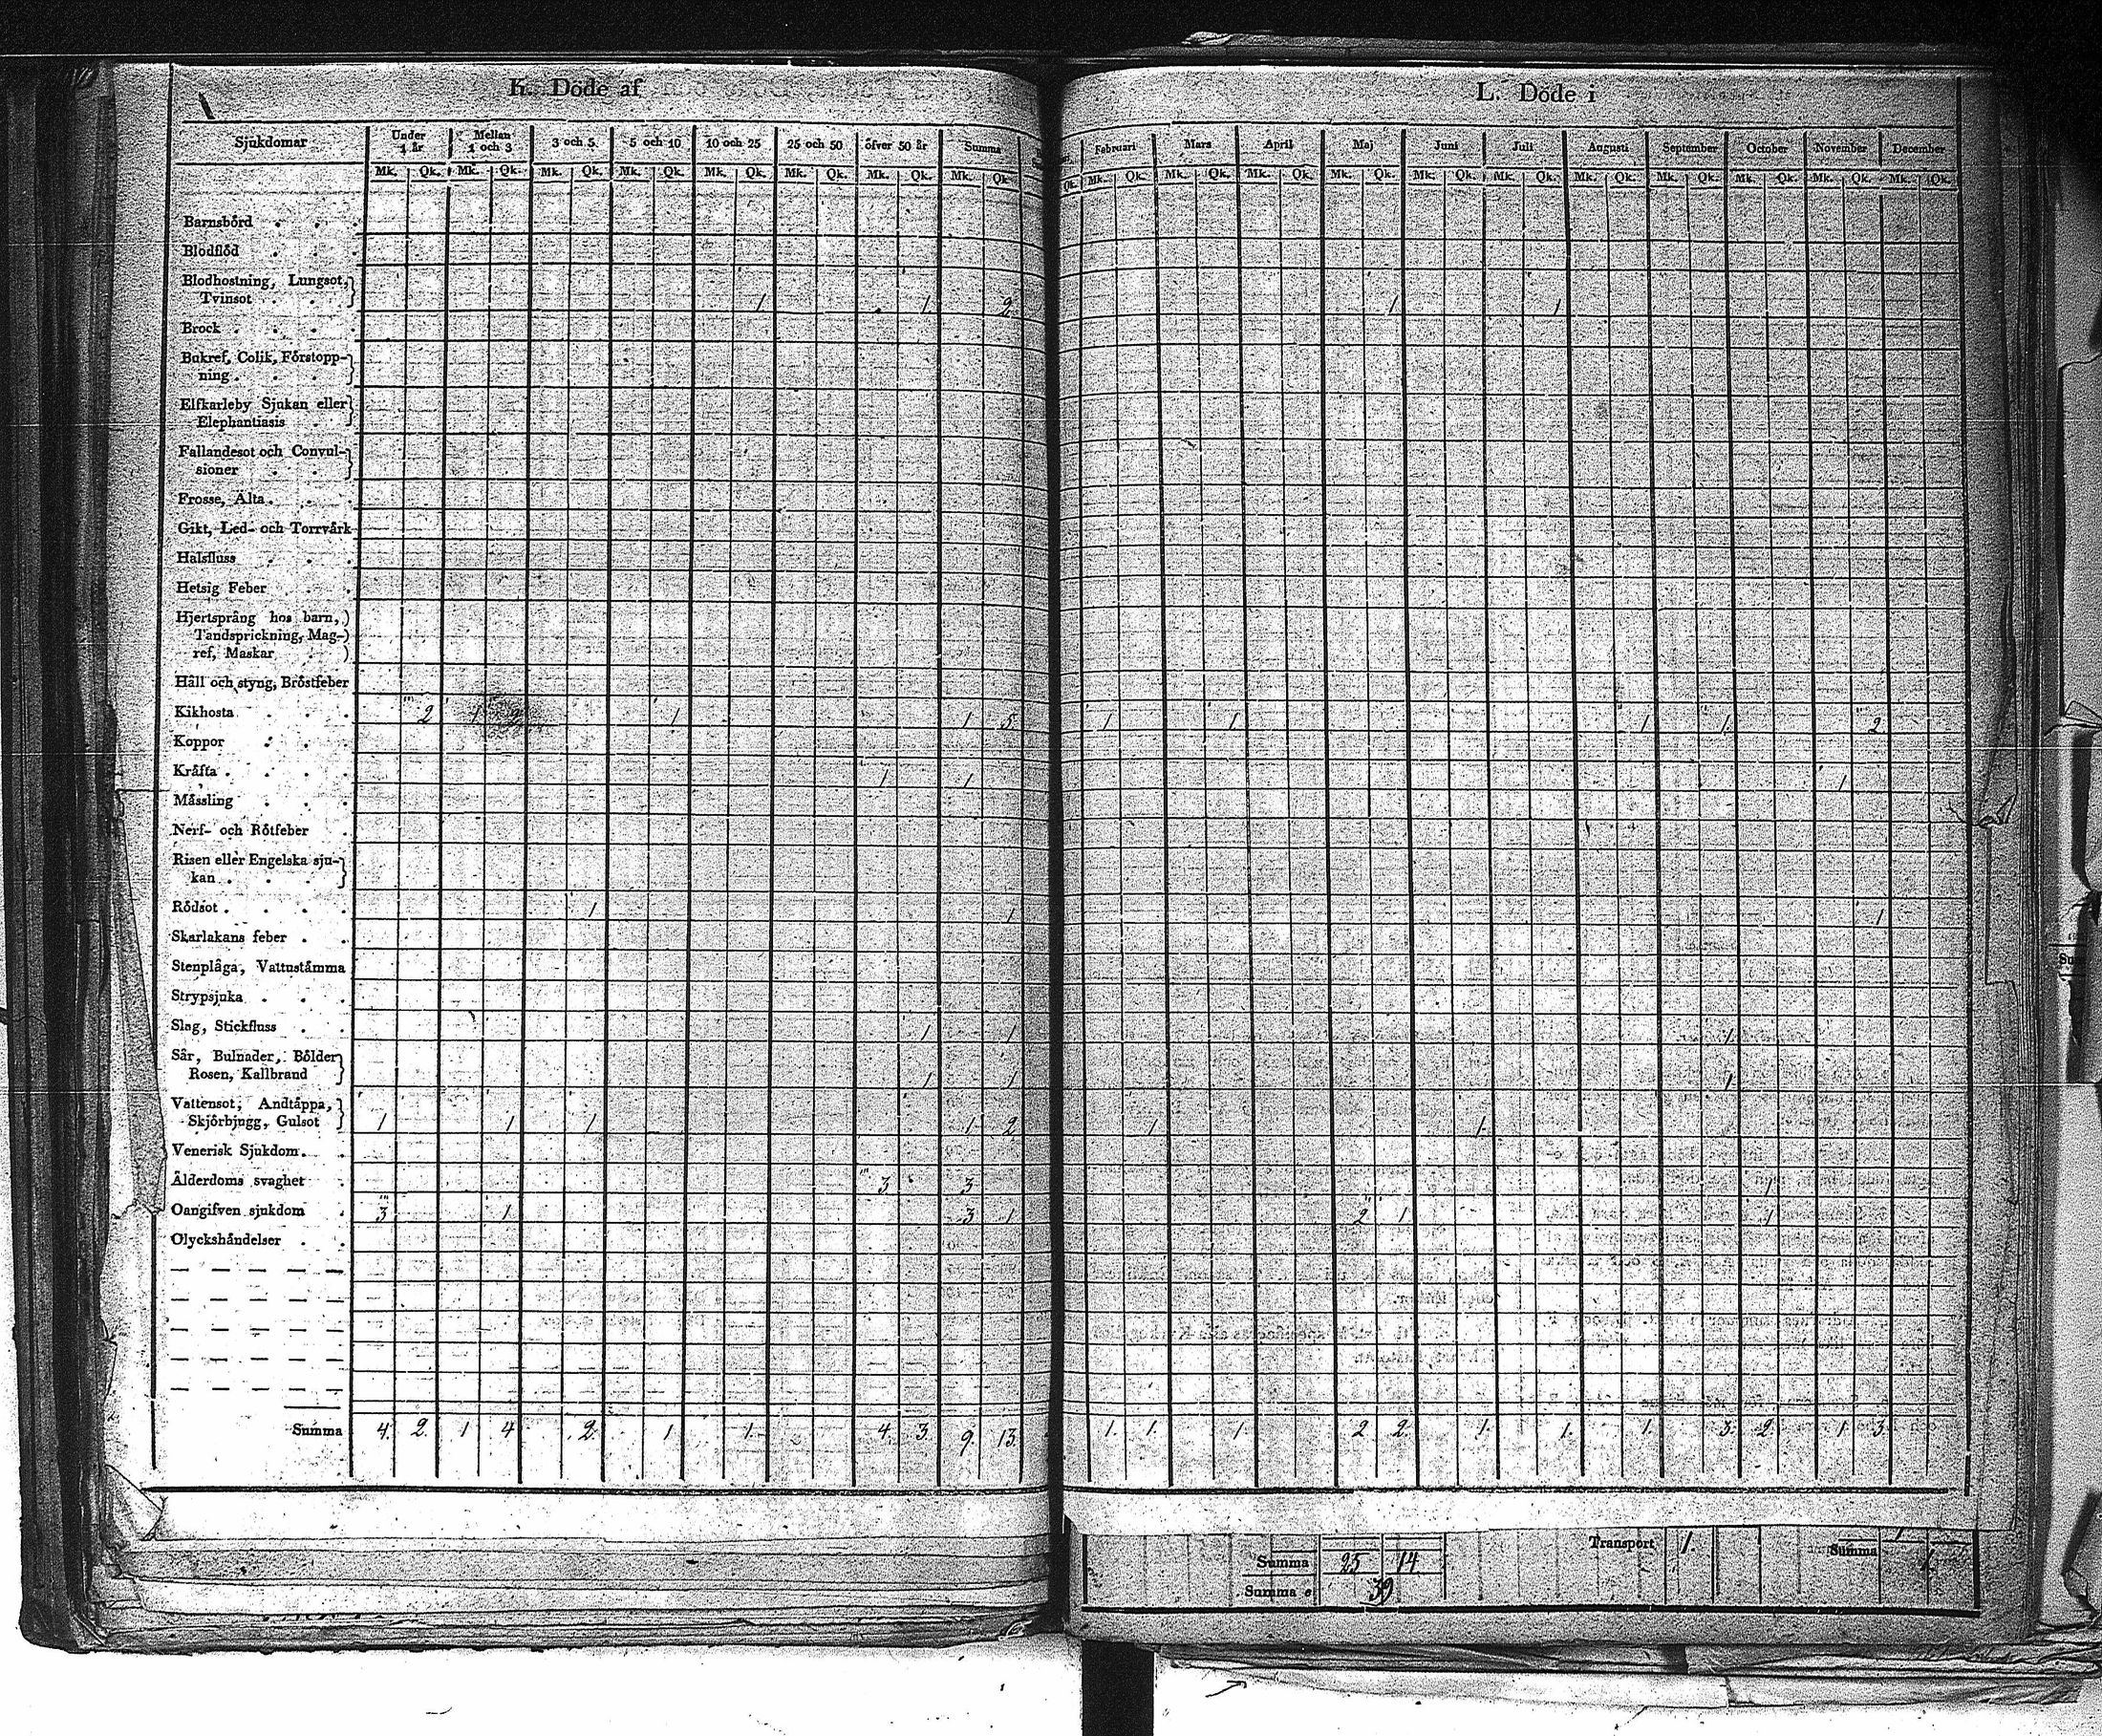 K. Döde af
Sjukdomar Under 1 år Mellan 1 och 3 3 och 5. 5 och 10 10 och 25 25 och 50 öfver 50 år Summa
Mk. Qk. Mk. Qk. Mk. Qk. Mk. Qk. Mk. Qk. Mk. Qk. Mk. Qk. Mk. Qk.
Barnsbörd
Blodflöd
Blodhostning, Lungsot,
Tvinsot 1 1 2
Brock
Bukref, Colik, Förstopp-
ning
Elfkarleby Sjukan eller
Elephantiasis
Fallandesot och Convul-
sioner
Frosse, Älta
Gikt, Led- och Torrvärk
Halsfluss
Hetsig Feber
Hjertspräng hos barn,
Tandsprickning, Mag-
ref, Maskar
Håll och styng, Bröstfeber
Kikhosta 2 1 2 1 1 5
Koppor
Kräfta 1 1
Mässling
Nerf- och Rötfeber
Risen eller Engelska sju-
kan
Rödsot 1 1
Skarlakans feber
Stenplåga, Vattustämma
Strypsjuka
Slag, Stickfluss 1 1
Sår, Bulnader, Bölder
Rosen, Kallbrand 1 1
Vattensot, Andtäppa,
Skjörbjugg, Gulsot 1 1 1 1 2
Venerisk Sjukdom
Ålderdoms svaghet 3 3
Oangifven sjukdom 3 1 3 1
Olyckshändelser
Summa 4. 2. 1 4 2. 1 1. 4. 3. 9. 13.
L. Döde i
Februari Mars April Maj Juni Juli Augusti September October November December
Qk. Mk. Qk. Mk. Qk. Mk. Qk. Mk. Qk. Mk. Qk. Mk. Qk. Mk. Qk. Mk. Qk. Mk. Qk. Mk. Qk. Mk. Qk.
1 1
1 1. 1 1. 2
1
1
1.
1
1 1.
1
2 1 1
1. 1. 1. 2 2. 1. 1. 1. 3. 2. 1 3.
Transport 1. Summa
Summa 25 14
Summa 39